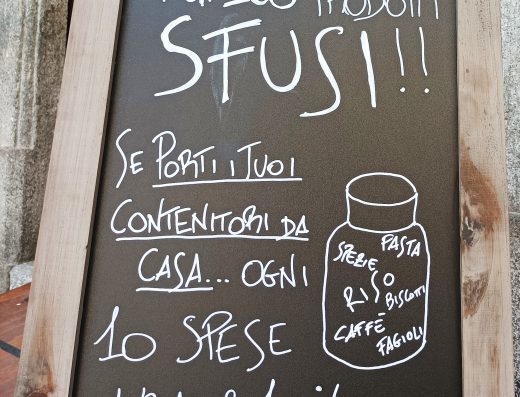 PRODOTTI
SFUSI!!
SE PORTI I TUOI
CONTENITORI DA
CASA... OGNI
10 SPESE
SPEZIE
PASTA
RISO
BISCOTTI
CAFFÈ
FAGIOLI